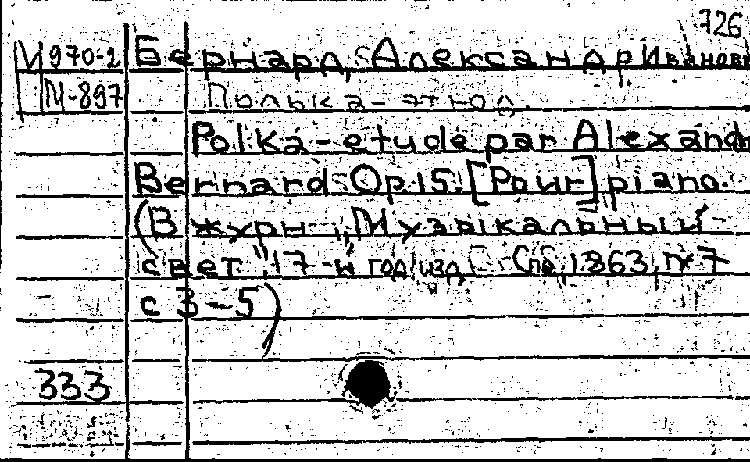 726
И970-2 Бернард, Александр Иванови
М-897 Полька-этюд.
Polka-etude par Alexandr
Bernard Op. 15. [Pour] piano.
(В журн. „Музыкальный
свет" 17-й год изд. Спб, 1863, № 7
с 3-5)
333